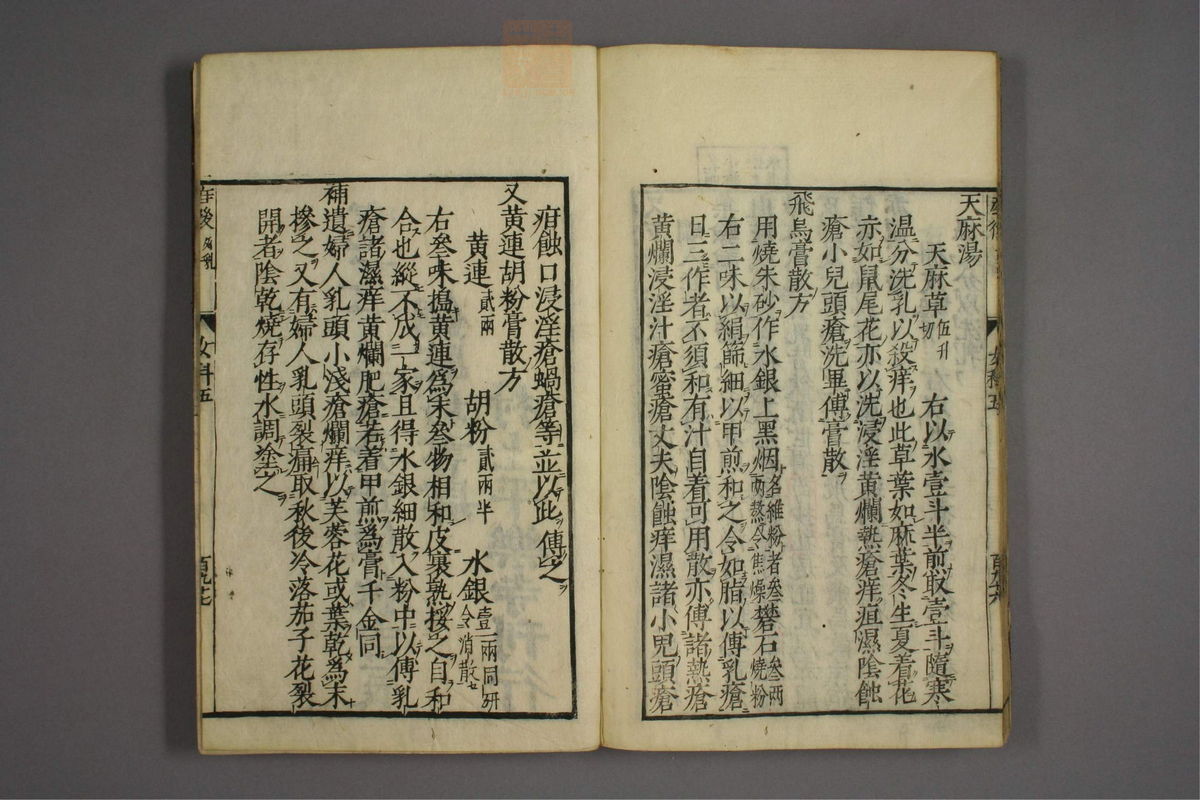 天麻湯
天麻草伍升切 右以水壹斗半煎取壹斗隨寒
温分洗乳以殺痒也此草葉如麻葉冬生夏着花
赤如鼠尾花亦以洗浸淫黄爛熱瘡痒疽濕陰蝕
瘡小兒頭瘡洗畢傅膏散
飛烏膏散方
用燒朱砂作水銀上黑烟名維粉者叁兩熬令焦燥礬石叁兩燒粉
右二味以絹篩細以甲煎和之令如脂以傅乳瘡
日三作者不須和有汁自着可用散亦傅諸熱瘡
黄爛浸淫汁瘡蜜瘡丈夫陰蝕痒濕諸小兒頭瘡
疳蝕口浸淫瘡蝸瘡等並以此傅之
又黄連胡粉膏散方
黄連貳兩 胡粉貳兩半 水銀壹兩同研令消散
右叁味搗黄連爲末叁物相和皮裹熟挼之自和
合也縱不成一家且得水銀細散入粉中以傅乳
瘡諸濕痒黄爛肥瘡若着甲煎爲膏千金同
補遺婦人乳頭小淺瘡爛痒以芙蓉花或葉乾爲末
摻之又有婦人乳頭裂痛取秋後冷落茄子花裂
開者陰乾燒存性水調塗之
女科五